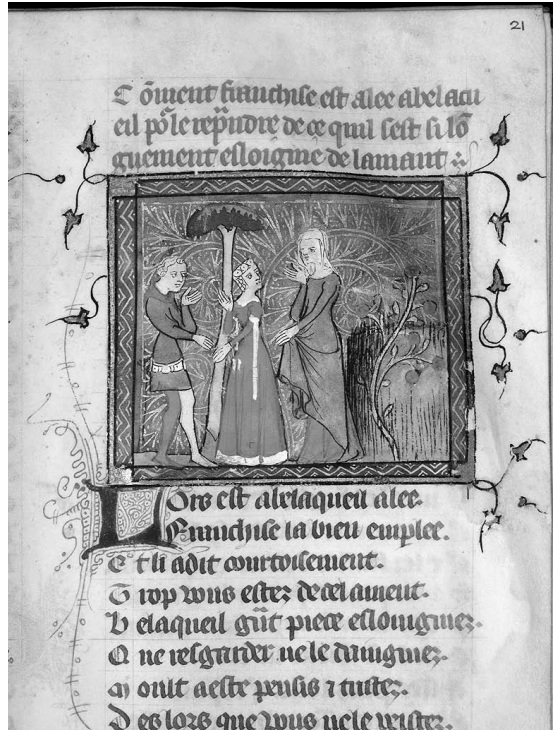 21
Cõment franchise est alee a belacu
eil põ le rep̃ndre de ce quil sest si lõ
guement esloignie de lamant
Lors est a belaqueil alee.
Franchise la bien emplee.
Et li a dit courtoisement.
Trop vous estez de cel ament.
Belaqueil g̃nt piece esloingniez.
Que resgarder ne le daingniez.
Moult a este pensis ⁊ tristez.
Des lors que vous ne le veistez.